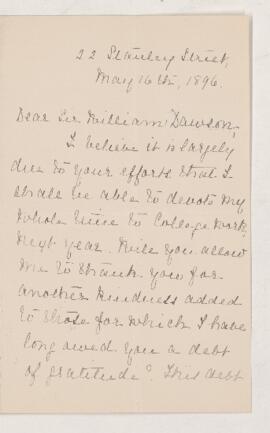 22 Stanley Street,
May 16th, 1896.
Dear Sir William Dawson,
I believe it is largely
due to your efforts that I
shall be able to devote my
whole time to College work
next year. Will you allow
me to thank you for
another kindness added
to those for which I have
long owed you a debt
of gratitude? This debt